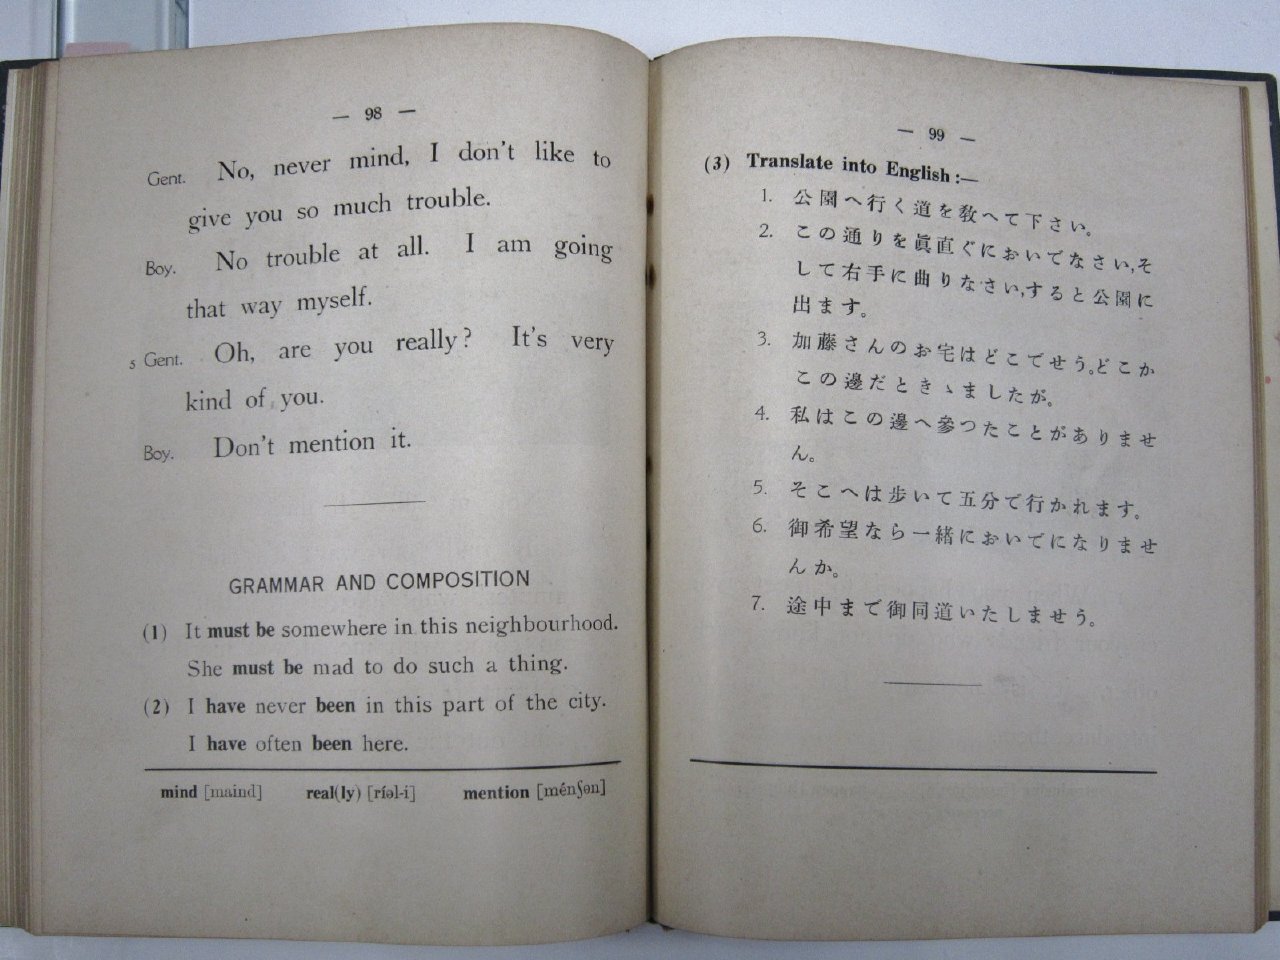 — 98 —
Gent. No, never mind, I don't like to
give you so much trouble.
Boy. No trouble at all. I am going
that way myself.
5 Gent. Oh, are you really? It's very
kind of you.
Boy. Don't mention it.
GRAMMAR AND COMPOSITION
(1) It must be somewhere in this neighbourhood.
She must be mad to do such a thing.
(2) I have never been in this part of the city.
I have often been here.
mind [maind] real(ly) [ríəl-i] mention [ménʃən]
— 99 —
(3) Translate into English:—
1. 公園へ行く道を敎へて下さい。
2. この通りを眞直ぐにおいでなさい,そ
して右手に曲りなさい,すると公園に
出ます。
3. 加藤さんのお宅はどこでせう。どこか
この邊だときゝましたが。
4. 私はこの邊へ參つたことがありませ
ん。
5. そこへは歩いて五分で行かれます。
6. 御希望なら一緒においでになりませ
んか。
7. 途中まで御同道いたしませう。